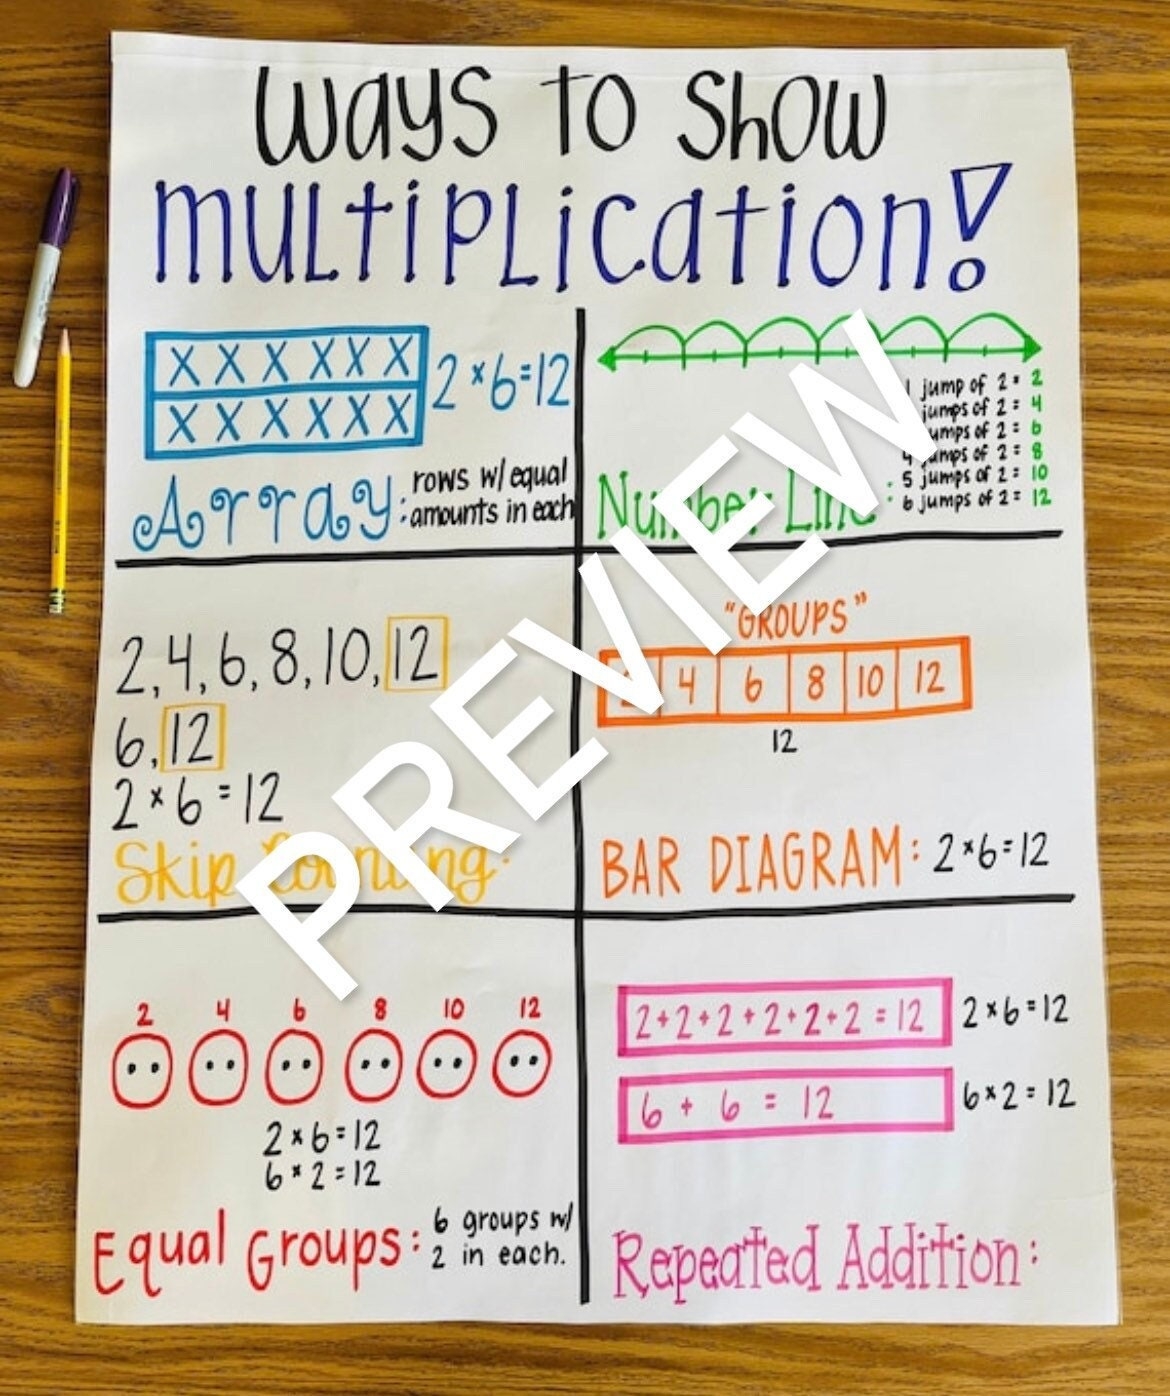 Ways to Show
Multiplication!
X X X X X X
X X X X X X
2 × 6 = 12
Array: rows w/ equal
amounts in each
1 jump of 2 = 2
jumps of 2 = 4
jumps of 2 = 6
4 jumps of 2 = 8
5 jumps of 2 = 10
6 jumps of 2 = 12
Number Line:
2, 4, 6, 8, 10, 12
6, 12
2 × 6 = 12
Skip Counting:
"GROUPS"
4 6 8 10 12
12
BAR DIAGRAM: 2 × 6 = 12
2 4 6 8 10 12
2 × 6 = 12
6 × 2 = 12
Equal Groups: 6 groups w/
2 in each.
2+2+2+2+2+2 = 12 2 × 6 = 12
6 + 6 = 12 6 × 2 = 12
Repeated Addition:
PREVIEW